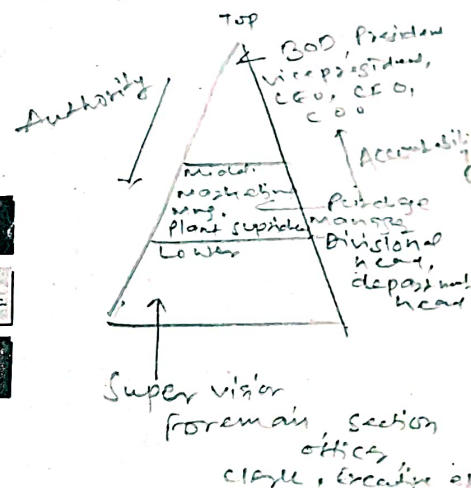 Top
BOD, President
vicepresident,
CEO, CFO,
COO
Authority
Accountabili
Middl.
Marketing
Mng.
Plant
Purchage
Manager
Divisional
head,
department
head
Lower
Super visior
Foreman, Section
officer,
Clerk, Executive of